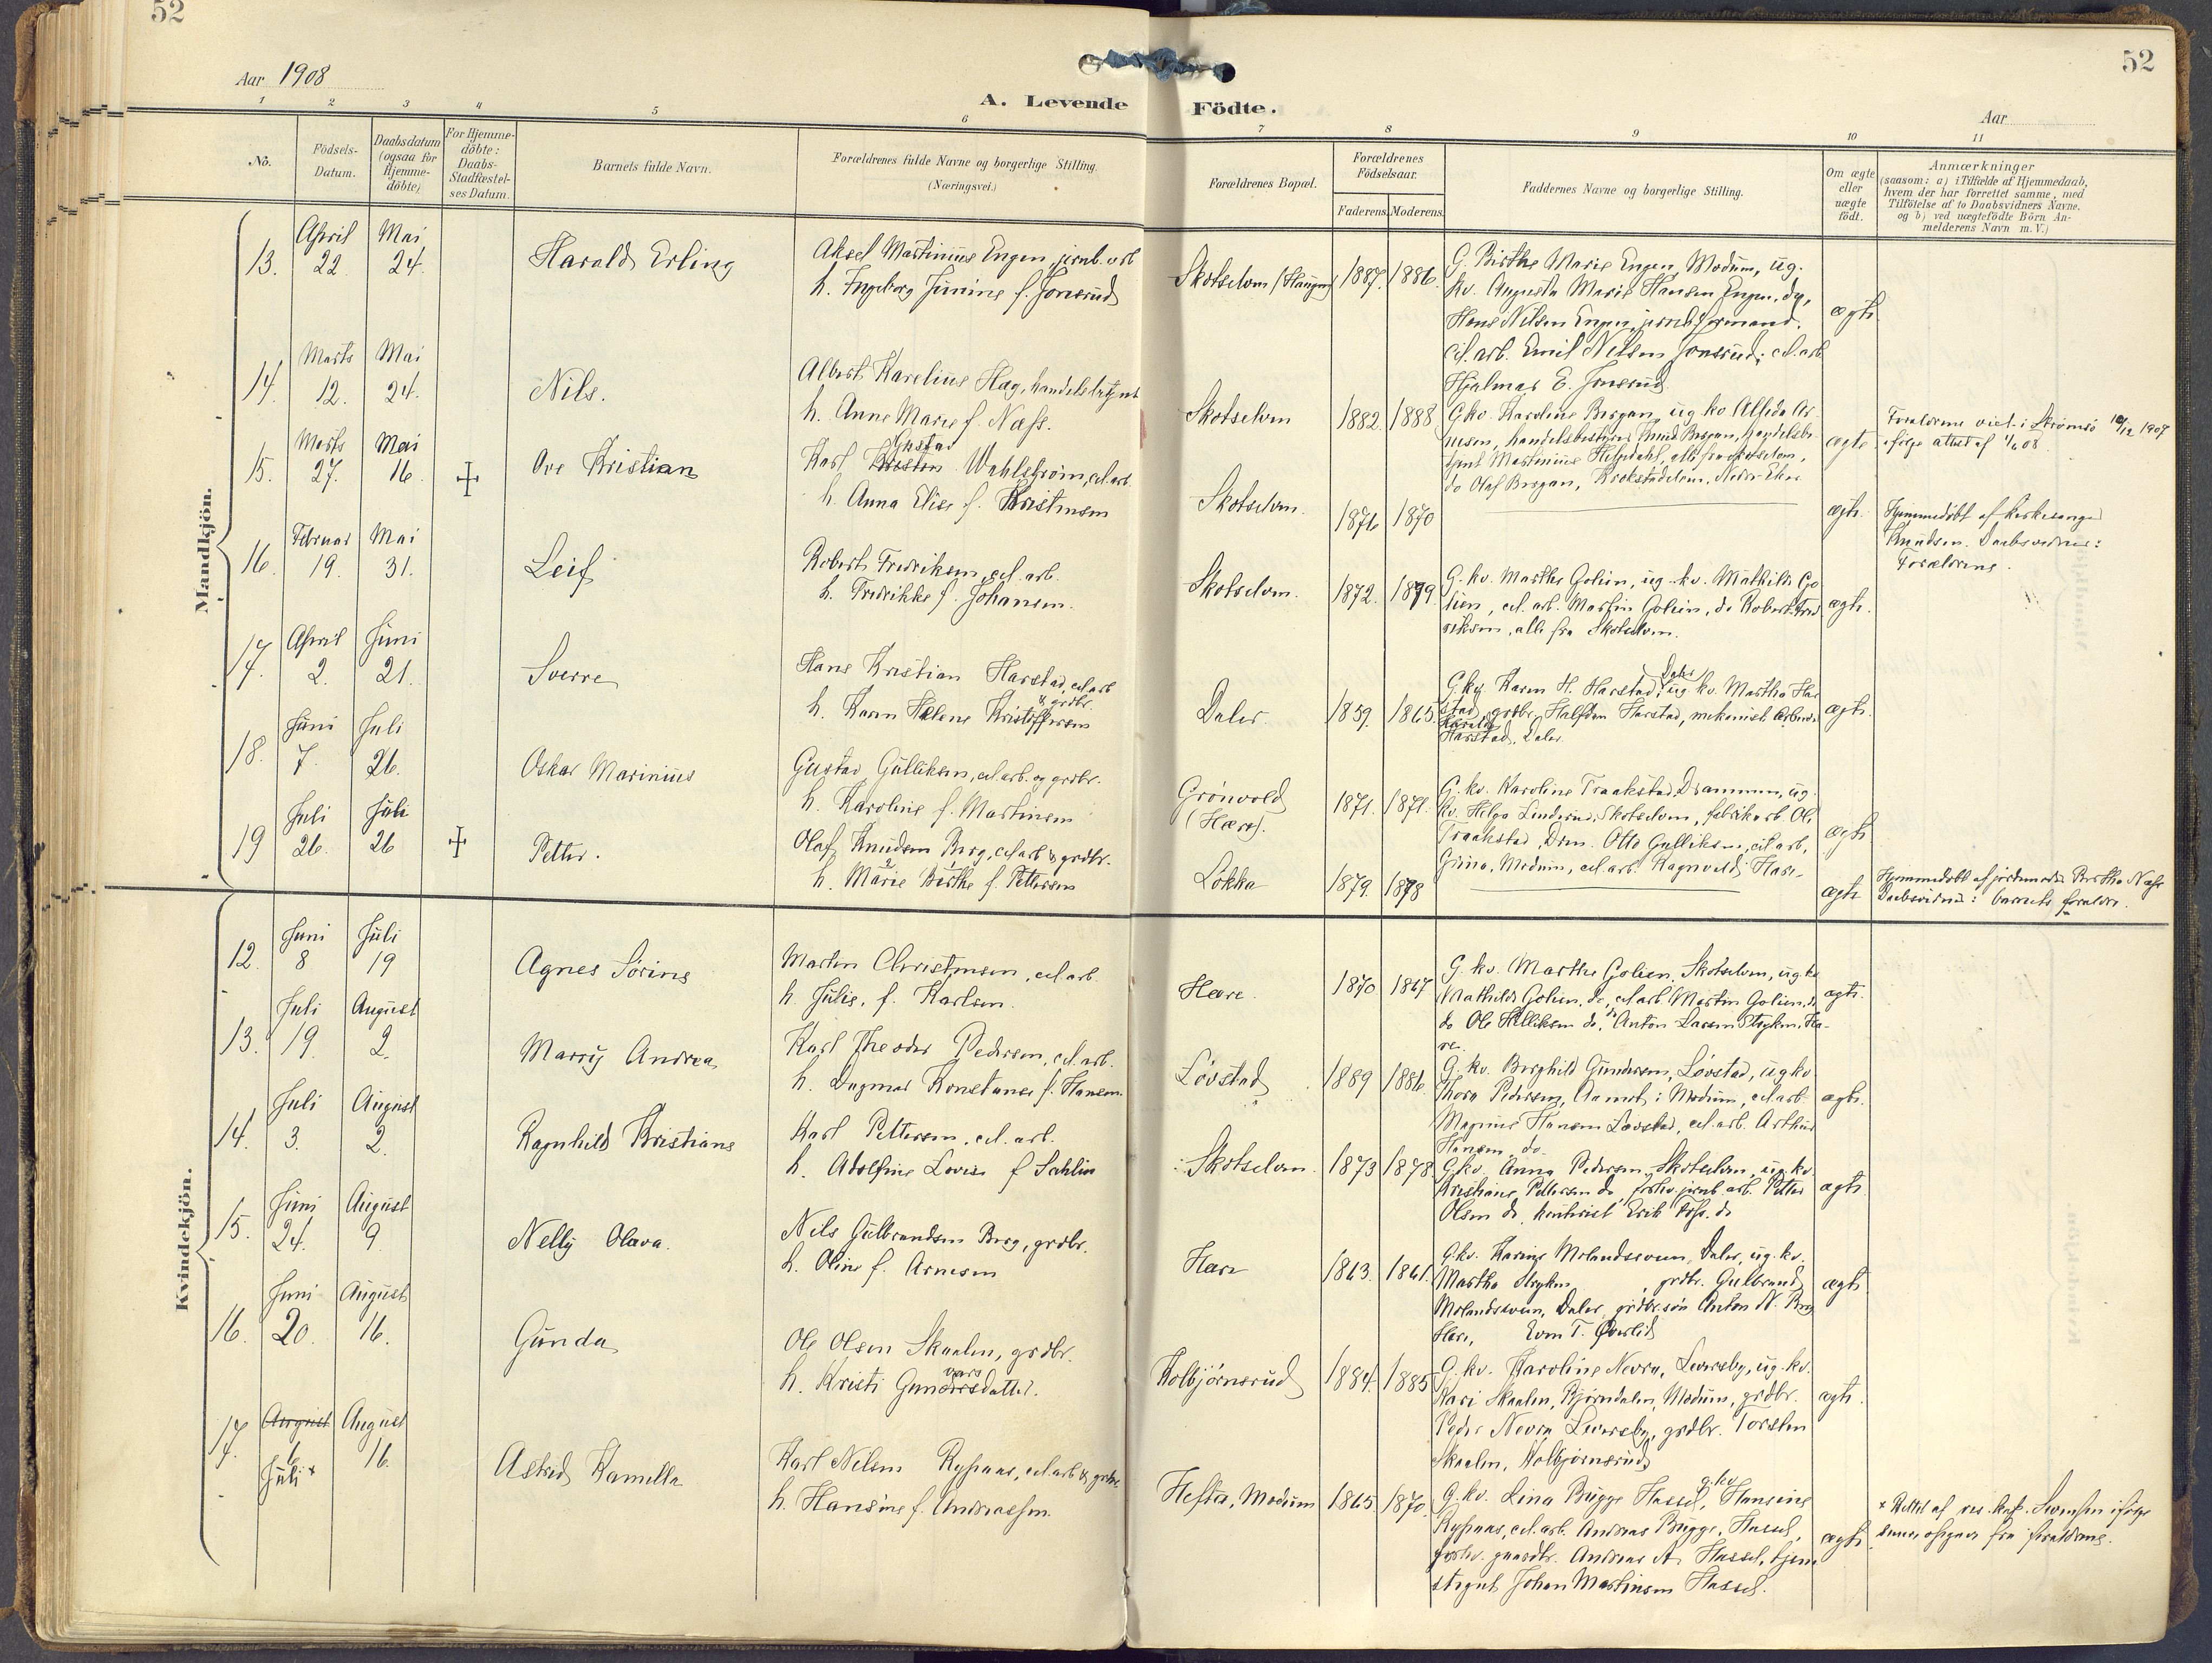 52
52
Aar 1908
A. Levende Födte.
Aar
1 2 3 4 5 6 7 8 9 10 11
No.
Födsels-Datum.
Daabsdatum (ogsaa for Hjemme-döbte)
For Hjemme-döbte: Daabs-Stadfæstel-ses Datum.
Barnets fulde Navn.
Forældrenes fulde Navne og borgerlige Stilling.
(Næringsvei.)
Forældrenes Bopæl.
Forældrenes Födselsaar.
Faderens. Moderens.
Faddernes Navne og borgerlige Stilling.
Om ægte eller uægte födt.
Anmærkninger
(saasom: a) i Tilfælde af Hjemmedaab,
hvem der har forrettet samme, med
Tilföielse af to Daabsvidners Navne.
og b) ved uægtefödte Börn An-
melderens Navn m.V.)
Mandkjön.
13. April 22. Mai 24. Harald Erling
Aksel Martinius Engen, jernb. arb.
h. Ingeborg Junine f. Jonsrud
Skotselven (Haugen) 1887. 1886.
G. Birthe Marie Engen, Modum, ug.
kv. Augusta Marie Hansen Engen, do,
Hans Nilsen Engen, jernb. formand,
cel. arb. Emil Nilsen Jonsrud, cel. arb.
Hjalmar E. Jonsrud
ægte
14. Marts 12. Mai 24. Nils.
Albert Karelius Hag, handelsbetjent
h. Anne Marie f. Næss.
Skotselven 1882. 1888
G. kv. Karoline Bergan, ug. kv. Alfida Ar-
nesen, handelsbestyrer Bergan, handelsbe-
tjent Martinius alle fra Skotselven,
do Olaf Bergan, Krokstadelven, Nedre Eker
ægte
Forældrene viet i Strømsø 10/12 1907
ifølge attest af
15. Marts 27. Mai 16. + Ove Kristian
Karl Gustav Wahlstrøm, cel. arb.
h. Anna Elise f. Kristensen
Skotselven. 1876 1870
ægte.
Hjemmedøbt af kirkesanger
Knudsen. Daabsvidner:
Forældrene.
16. Februar 19. Mai 31. Leif
Robert Fredriksen, cel. arb.
h. Fredrikke f. Johansen.
Skotselven. 1872. 1879.
G. kv. Marthe Golien, ug. kv. Mathilde Go-
lien, cel. arb. Martin Golien, do Robert Fred-
riksen, alle fra Skotselven.
ægte.
17. April 2. Juni 21. Sverre
Hans Kristian Harstad, cel. arb. & grdbr.
h. Karen Helene Kristoffersen
Daler. 1859. 1865.
G. kv. Karen H. Harstad, Daler, ug. kv. Martha Har-
stad, grdbr. Halfdan Harstad, mekanisk arbeider
Harald
Harstad, Daler.
ægte.
18. Juni 7. Juli 26. Oskar Marinius
Gustav Gulliksen, cel. arb. og grdbr.
h. Karoline f. Martinsen
Grönvold (Hære). 1871. 1871.
G. kv. Karoline Traakstad, Drammen, ug.
kv. Helga Linderud, Skotselven, fabrikarb. Ole
Traakstad, Drm. Otto Gulliksen, cel. arb,
Modum, cel. arb. Ragnvald Hære.
ægte
19 Juli 26. Juli 26 + Petter.
Olaf Knudsen Berg, cel. arb. & grdbr.
h. Marie Birthe f. Pettersen
Lökka 1879. 1878
ægte
Hjemmedøbt af jordemoder Berthe Næss
Daabsvidner: barnets forældre.
Kvindekjön.
12. Juni 8 Juli 19 Agnes Sörine
Martin Christensen, cel. arb.
h. Julie, f. Karlsen.
Hære. 1870 1867
G. kv. Marthe Golien, Skotselven, ug. kv.
Mathilde Golien, do, cel. arb. Martin Golien, do
do Ole Helliksen do, do Anton Larsen Stryken, Hæ-
re.
ægte.
13. Juli 19. August 2. Marry Andrea
Karl Theodor Pedersen, cel. arb.
h. Dagmar Konstanse f. Hansen.
Lövstad 1889 1886.
G. kv. Borghild Gundersen, Lövstad, ug. kv.
Thora Pedersen, Aamot i Modum, cel. arb.
Magnus Hansen Løvstad, cel. arb. Arthur
Hansen do.
ægte.
14. Juli 3. August 2. Ragnhild Kristiane
Karl Pettersen, cel. arb.
h. Adolfine Lovise f. Sehlin
Skotselven 1873 1878
G. kv. Anna Pedersen, Skotselven, ug. kv.
Kristiane Pettersen do, forhv. jernb. arb. Petter
Olsen do, kontorist Erik Foss. do
ægte
15. Juni 24. August 9 Nelly Olava.
Nils Gulbrandsen Berg, grdbr.
h. Oline f. Arnesen
Hære 1863. 1861.
G. kv. Karine Molandsveen, Daler, ug. kv.
Martha Stryken, grdbr. Gulbrand
Molandsveen, Daler, grdbr. søn Anton N. Berg
Hære, Even T. Øverlid
ægte
16. Juni 20. August 16. Gunda
Ole Olsen Skaalen, grdbr.
h. Kristi Gunvarsdatter.
Kolbjörnsrud 1884. 1885
G. kv. Karoline Nevra, Leversby, ug. kv.
Kari Skaalen, Bjørndalen, Modum, grdbr.
Peder Nevra Leversby, grdbr. Torsten
Skaalen, Kolbjørnsrud
ægte.
17. August 6 Juli x August 16. Astrid Kamilla
Karl Nilsen Rypaas, cel. arb. & grdbr.
h. Hansine f. Andreassen.
Hefta, Modum 1865. 1870.
G. kv. Lina Brugge Hassel, g. kv. Hansine
Rypaas, cel. arb. Andreas Brugge, Hassel,
forhv. gaardbr. Andreas A. Hassel, tjene-
stegut Johan Martinsen Hassel.
ægte
x Rettet af res. kap. Svendsen ifølge
senere opgave fra forældrene.